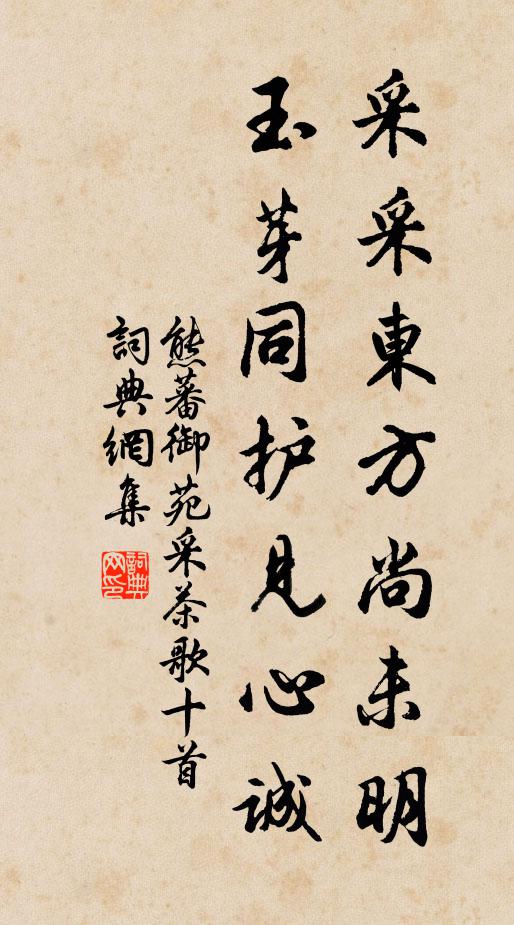 采采東方尚未明
玉芽同护見心誠
熊蕃御苑采茶歌十首
詞典網集
詞典网印